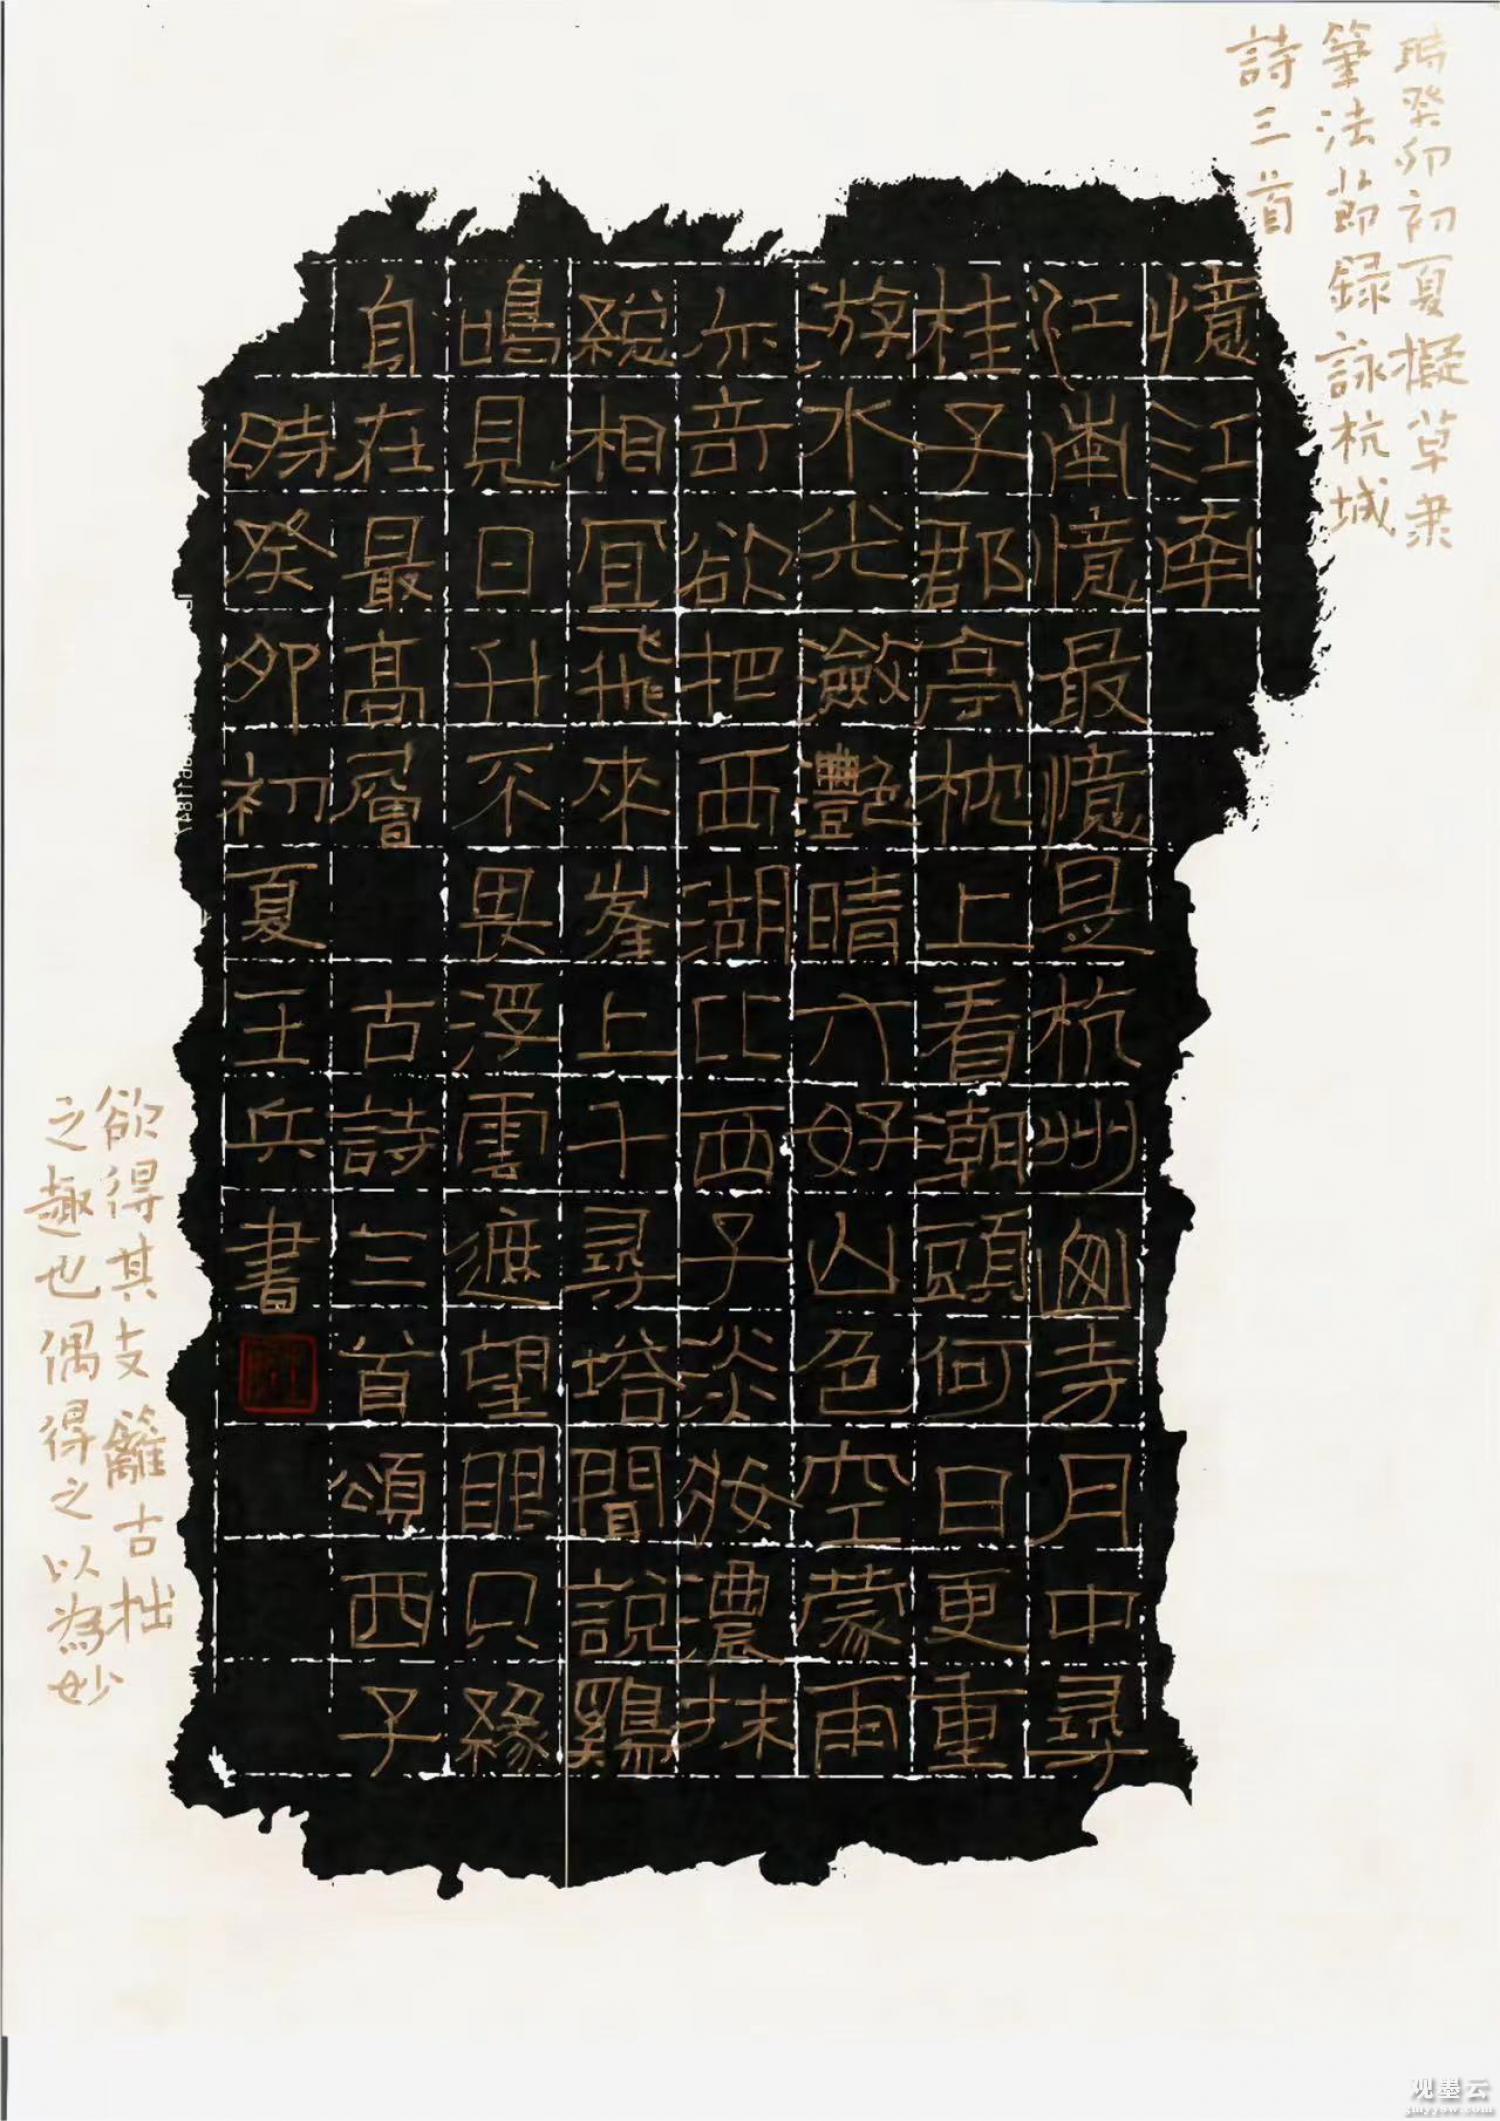 時癸卯初夏擬草隸
筆法節録詠杭城
詩三首
憶江南
江南憶最憶是杭州山寺月中尋
桂子郡亭枕上看潮頭何日更重
游水光瀲灩晴方好山色空蒙雨
亦奇欲把西湖比西子淡妝濃抹
總相宜飛來峯上千尋塔聞說鷄
鳴見日升不畏浮雲遮望眼只緣
自在最高層 古詩三首頌西子
時癸卯初夏王兵書
欲得其支籬古拙
之趣也偶得之以為妙
观墨云